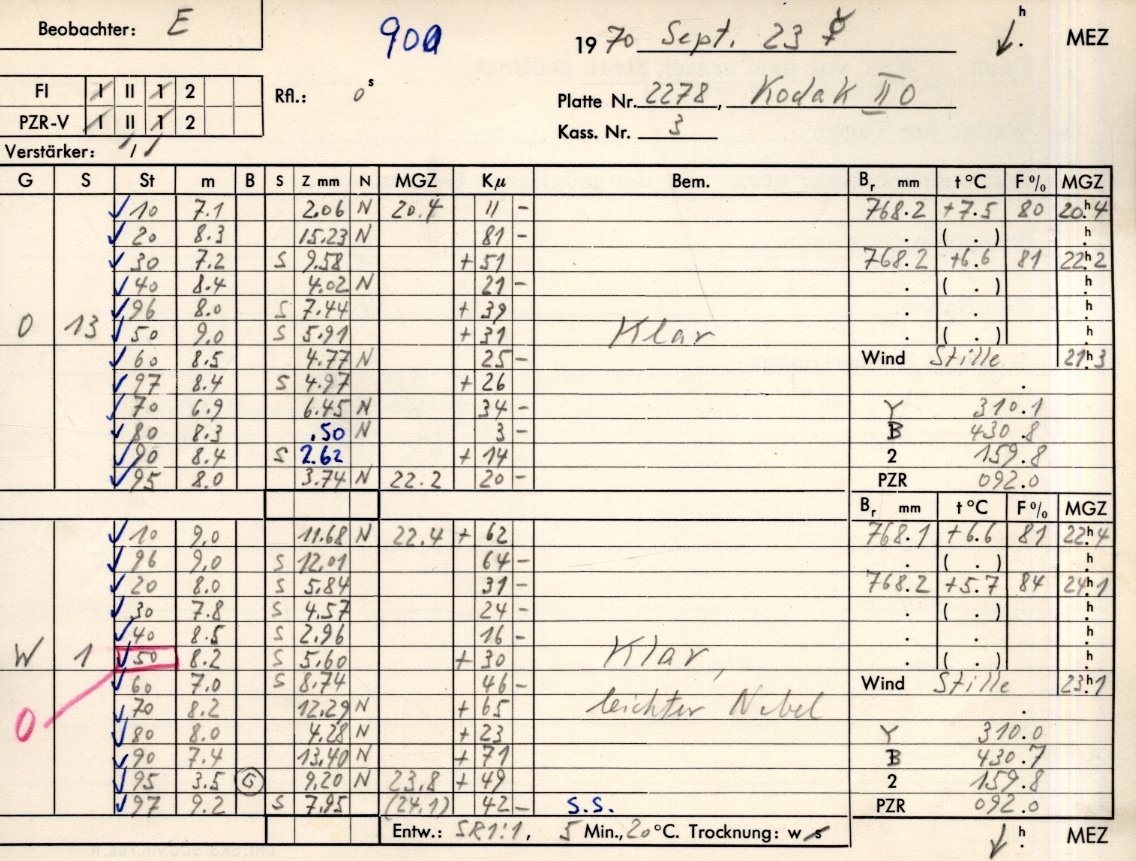 Beobachter: E
900
1970 Sept. 23 ☿
h . MEZ
FI I II 1 2
PZR-V I II 1 2
Rfl.: 0 s
Platte Nr. 2278, Kodak II O
Kass. Nr. 3
Verstärker: / /
G S St m B S Z mm N MGZ Kµ Bem. Br mm t °C F % MGZ
10 7.1 2.06 N 20.4 11 - 768.2 +7.5 80 20h.4
20 8.3 15.23 N 81 - . ( . ) h.
30 7.2 S 9.58 + 51 768.2 +6.6 81 22h.2
40 8.4 4.02 N 21 - . ( . ) h.
96 8.0 S 7.44 + 39 . . h.
O 13 50 9.0 S 5.91 + 31 Klar . ( . ) h.
60 8.5 4.77 N 25 - Wind Stille 21h.3
97 8.4 S 4.97 + 26 .
70 6.9 6.45 N 34 - Y 310.1
80 8.3 .50 N 3 - B 430.8
90 8.4 S 2.62 + 14 2 159.8
95 8.0 3.74 N 22.2 20 - PZR 092.0
Br mm t °C F % MGZ
10 9.0 11.68 N 22.4 + 62 768.1 +6.6 81 22h.4
96 9.0 S 12.01 64 - . ( . ) h.
20 8.0 S 5.84 31 - 768.2 +5.7 84 24h.1
30 7.8 S 4.57 24 - . ( . ) h.
40 8.5 S 2.96 16 - . . h.
W 1 50 8.2 S 5.60 + 30 Klar, . ( . ) h.
60 7.0 S 8.74 46 - Wind Stille 23h.1
O 70 8.2 12.29 N + 65 leichter Nebel .
80 8.0 4.28 N + 23 Y 310.0
90 7.4 13.40 N + 71 B 430.7
95 3.5 G 9.20 N 23.8 + 49 2 159.8
97 9.2 S 7.95 (24.1) 42 - S.S. PZR 092.0
Entw.: SR1:1, 5 Min., 20 °C. Trocknung: w s
h . MEZ